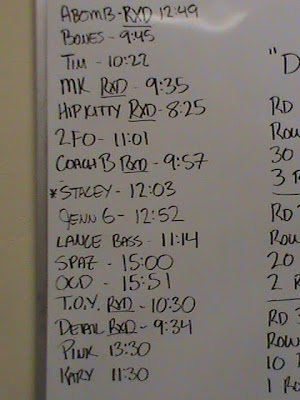 ABOMB-RXD 12:49
BONES- 9:45
TIM - 10:22
MK RXD - 9:35
HIPKITTY RXD- 8:25
2FO- 11:01
COACH B RXD - 9:57
*STACEY- 12:03
JENN 6- 12:52
LANCE BASS- 11:14
SPAZ - 15:00
OCD - 15:51
T.O.Y. RXD - 10:30
DETAIL RXD- 9:34
PINK 13:30
KARY 11:30
"D
RD
ROW
30
3 R
RD
ROW
20
2 R
RD 3
ROW
10
1 RO